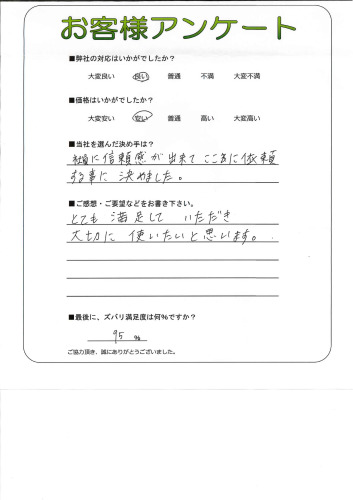 お客様アンケート
■弊社の対応はいかがでしたか?
大変良い 良い 普通 不満 大変不満
■価格はいかがでしたか?
大変安い 安い 普通 高い 大変高い
■当社を選んだ決め手は?
社長に信頼感が出来て ここに依頼
する事に 決めました。
■ご感想・ご要望などをお書き下さい。
とても 満足して いただき
大切に 使いたいと思います。
■最後に、ズバリ満足度は何%ですか?
95 %
ご協力頂き、誠にありがとうございました。